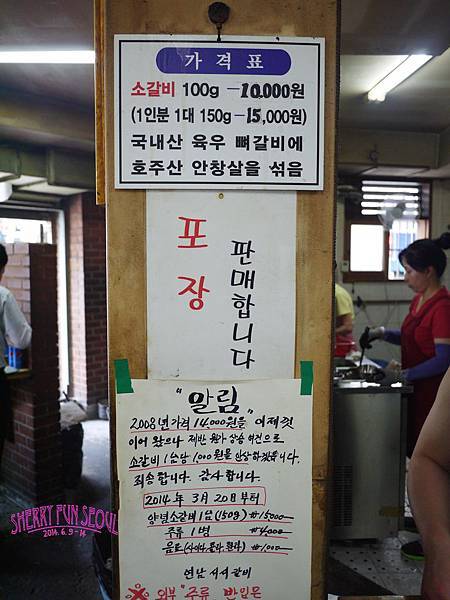 가격표
소갈비 100g - 10,000원
(1인분 1대 150g - 15,000원)
국내산 육우 뼈갈비에
호주산 안창살을 섞음
포장
판매합니다
"알림"
2008년가격 14,000원을 이제껏
이어 왔으나 제반 원가 상승 여건으로
소갈비 1인당 1000원을 인상하겠습니다.
죄송합니다. 감사합니다.
2014年 3月 20日부터
양념소갈비 1人 (150g) ₩15000
주류 1병 ₩4000
음료 (사이다,콜라,환타) ₩1000
연남 서서갈비
외부 "주류 반입은
SHERRY FUN SEOUL
2014. 6. 9 - 14